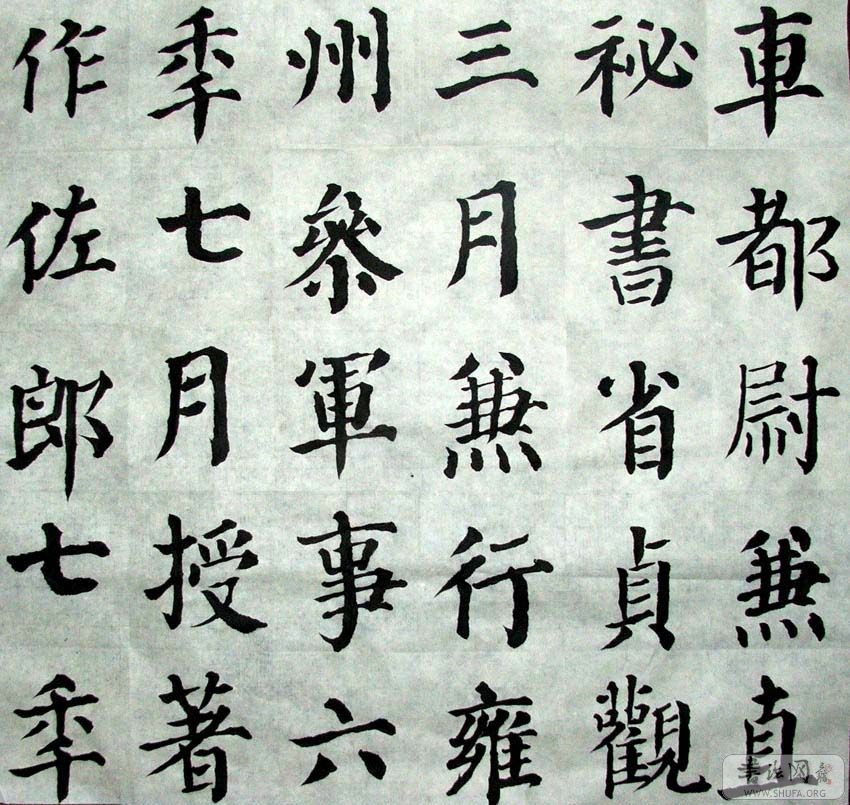 車都尉兼直
祕書省貞觀
三月兼行雍
州參軍事六
季七月授著
作佐郎七季
書法网
WWW.SHUFA.ORG